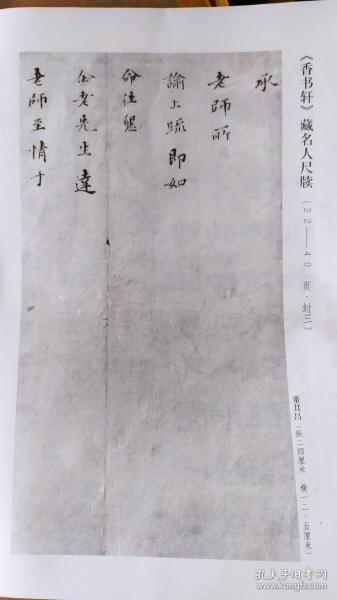 《香书轩》藏名人尺牍
（22——40 页·封三）
承
老師所
諭上疏即如
命往懇
金老先生達
老師至情于
董其昌（纵二四厘米 横一二·五厘米）
孔夫子旧书网